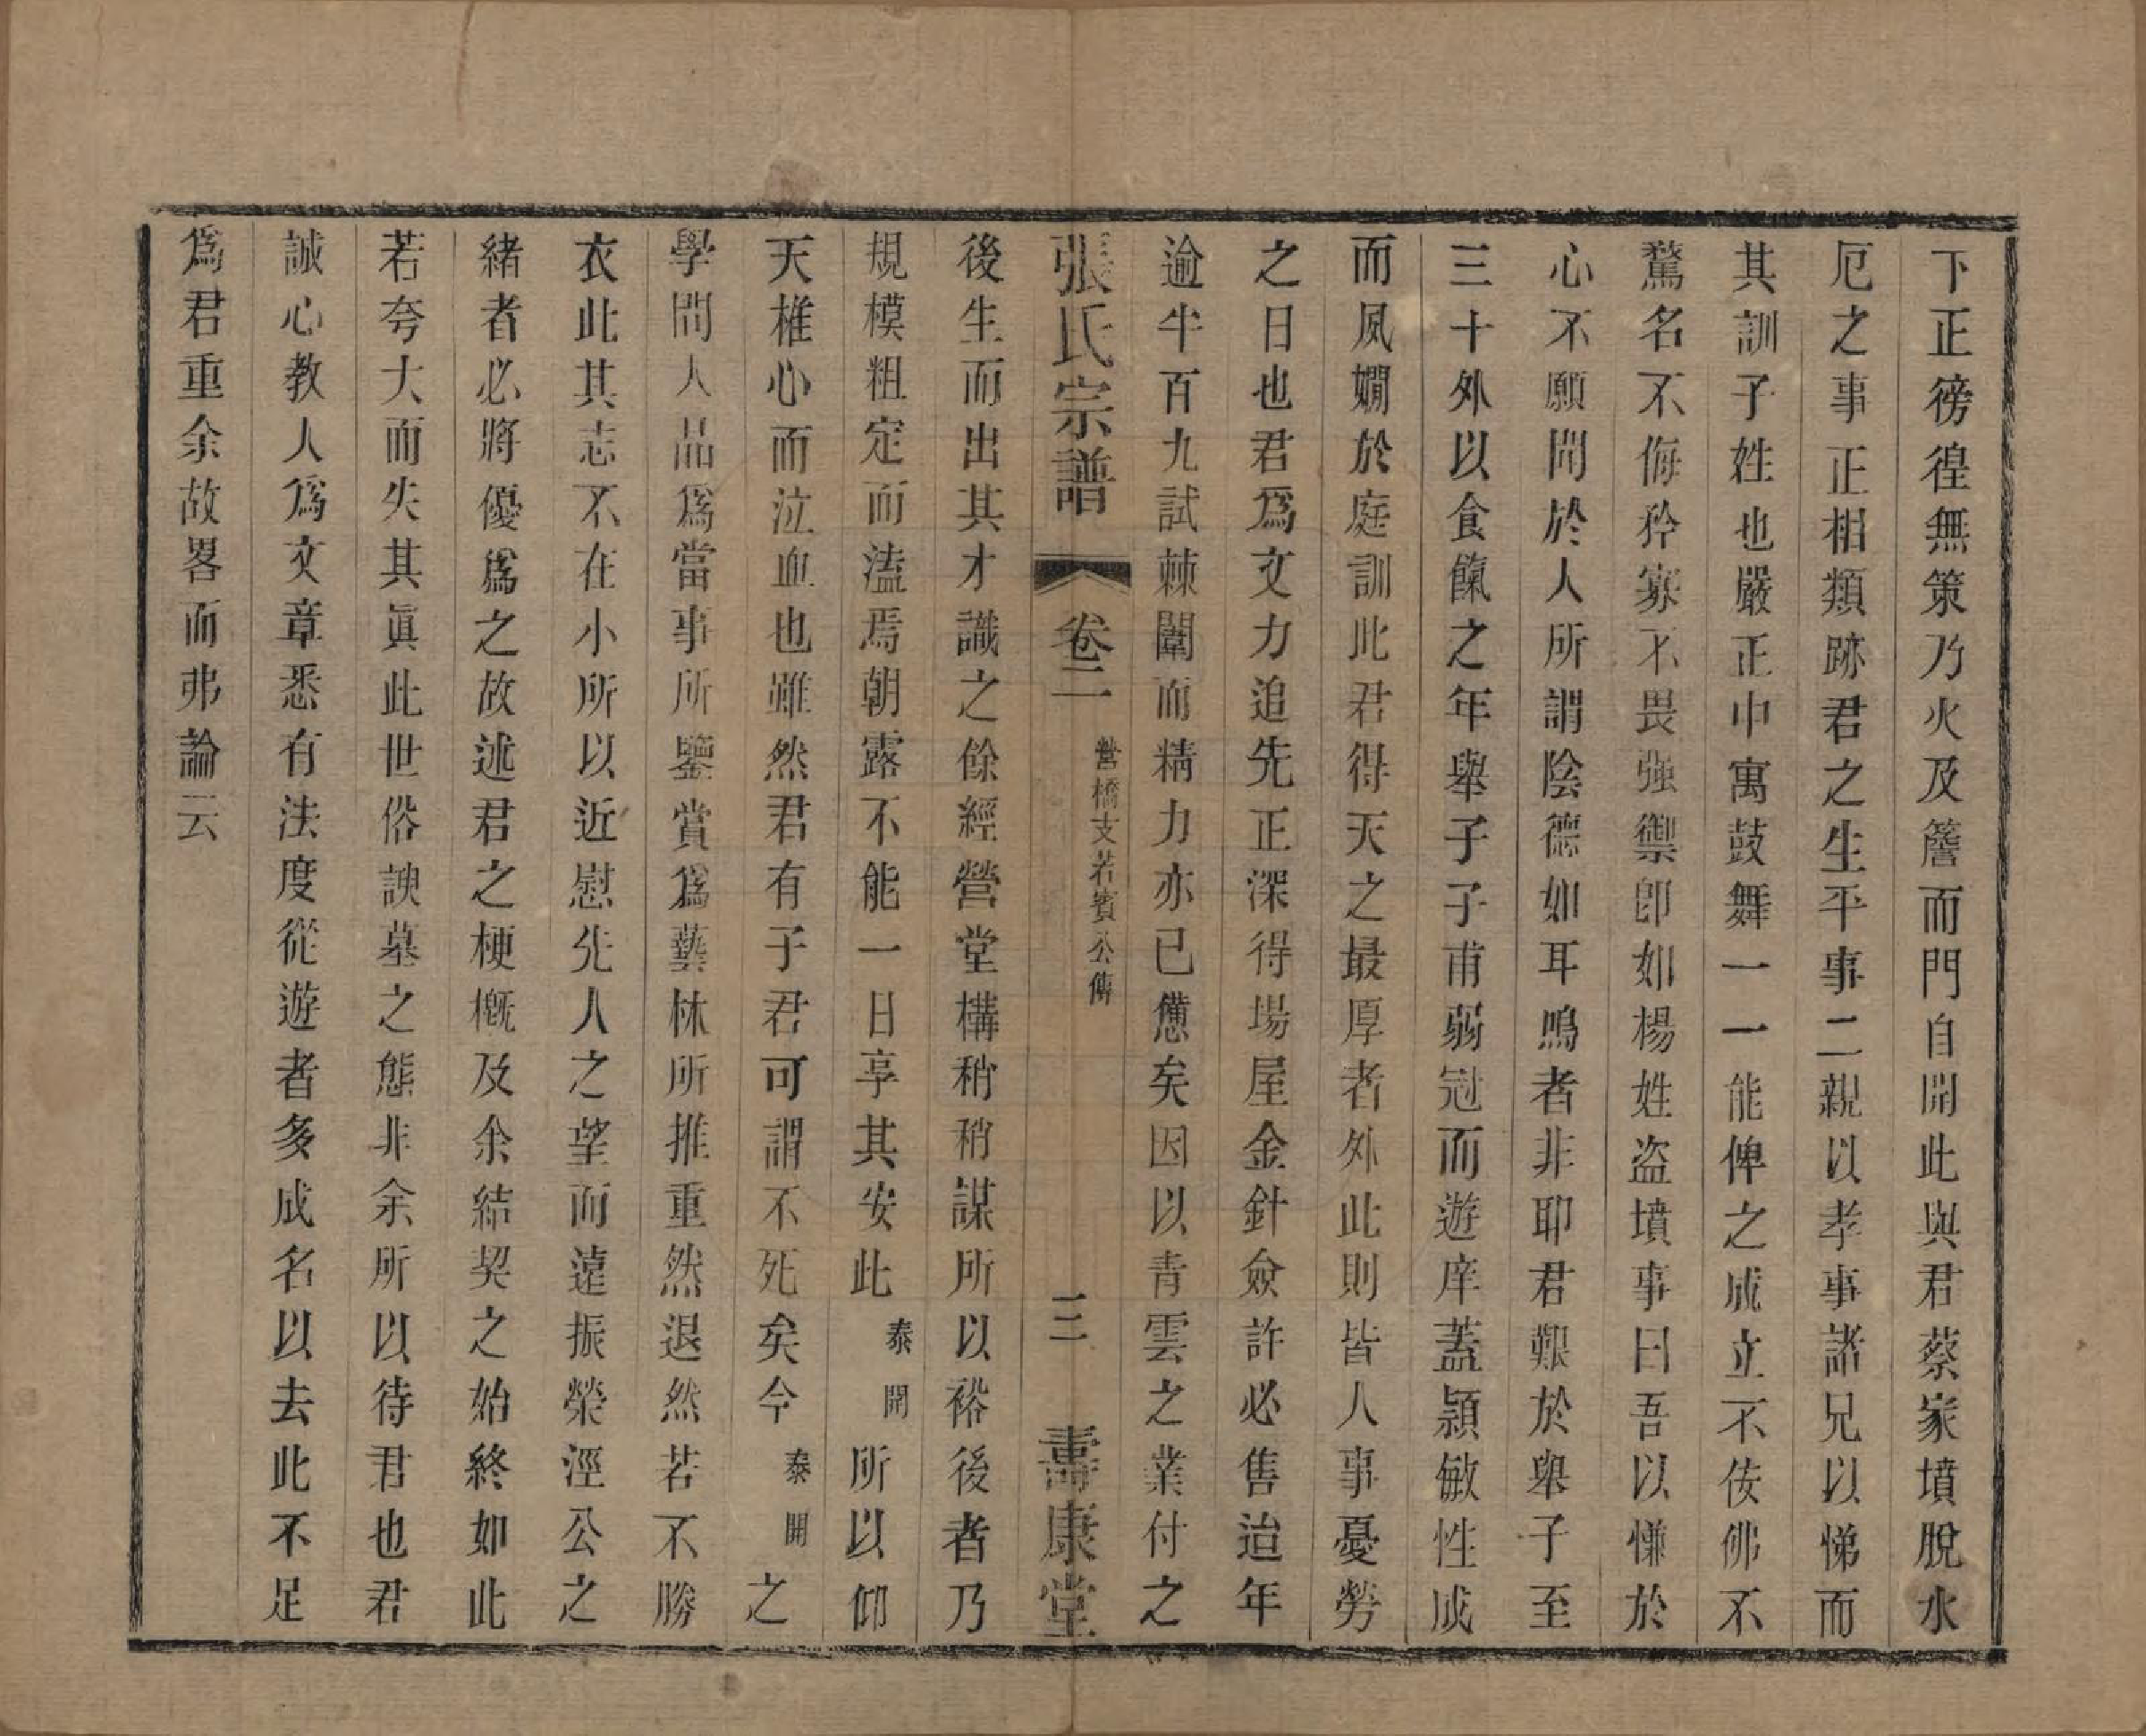 下正徬徨無策乃火及簷而門自開此與君蔡家墳脫水
厄之事正相類跡君之生平事二親以孝事諸兄以悌而
其訓子姓也嚴正中寓鼓舞一一能俾之成立不佞佛不
騖名不侮矜寡不畏強禦卽如楊姓盜墳事曰吾以慊於
心不願問於人所謂陰德如耳鳴者非耶君艱於舉子至
三十外以食餼之年舉子子甫弱冠而遊庠蓋穎敏性成
而夙嫺於庭訓此君得天之最厚者外此則皆人事憂勞
之日也君爲文力追先正深得場屋金針僉許必售迨年
逾半百九試棘闈而精力亦已憊矣因以青雲之業付之
張氏宗譜 卷二 營橋支若賓公傳 三 壽康堂
後生而出其才識之餘經營堂構稍稍謀所以裕後者乃
規模粗定而溘焉朝露不能一日享其安此泰開所以仰
天椎心而泣血也雖然君有子君可謂不死矣今泰開之
學問人品爲當事所鑒賞爲藝林所推重然退然若不勝
衣此其志不在小所以近慰先人之望而遠振榮涇公之
緒者必將優爲之故述君之梗概及余結契之始終如此
若夸大而失其眞此世俗諛墓之態非余所以待君也君
誠心教人爲文章悉有法度從遊者多成名以去此不足
爲君重余故畧而弗論云